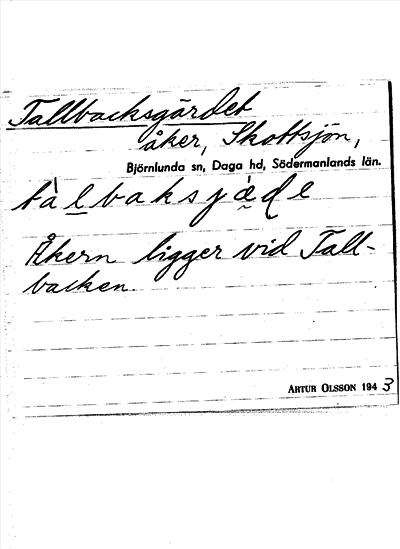 Tallbacksgärdet
åker, Skottsjön,
Björnlunda sn, Daga hd, Södermanlands län.
tàl̲baksjä́ɖe
Åkern ligger vid Tall-
backen.
ARTUR OLSSON 1943